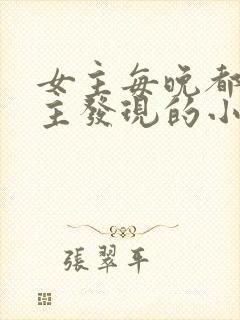 女主每晚都
主發現的小
張翠平